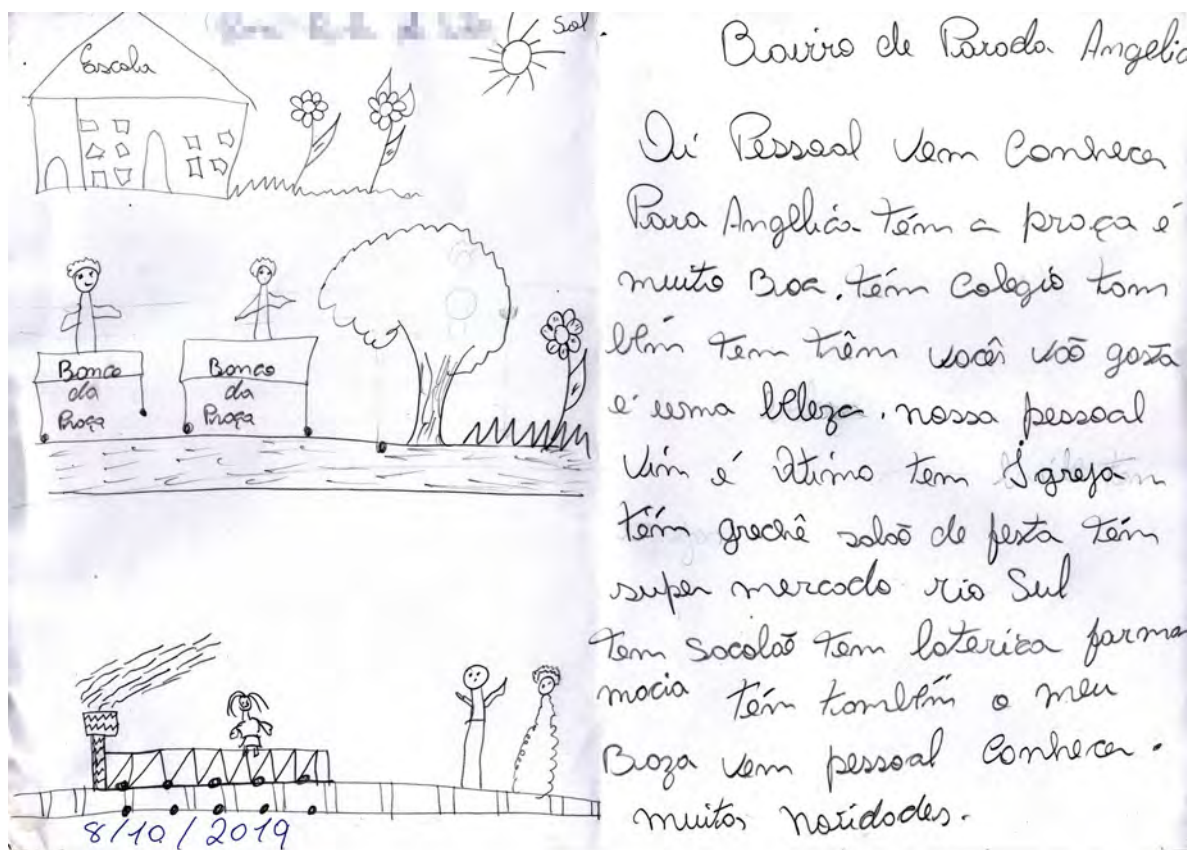 Escola
Sol.
Banco
da
Praça
Banco
da
Praça
8/10/2019
Bairro de Parada Angelic
Oi Pessoal Vem Conhecer
Para Angélica têm a praça é
muito Boa. têm Colegio tam
bém tem trêm vocês vão gosta
é uma beleza. nossa pessoal
vim é Otimo tem Igreja
têm grechê salão de festa têm
super mercado rio Sul
tem Sacolão tem loterica farma
macia têm também o meu
Boza vem pessoal Conhecer.
muitos